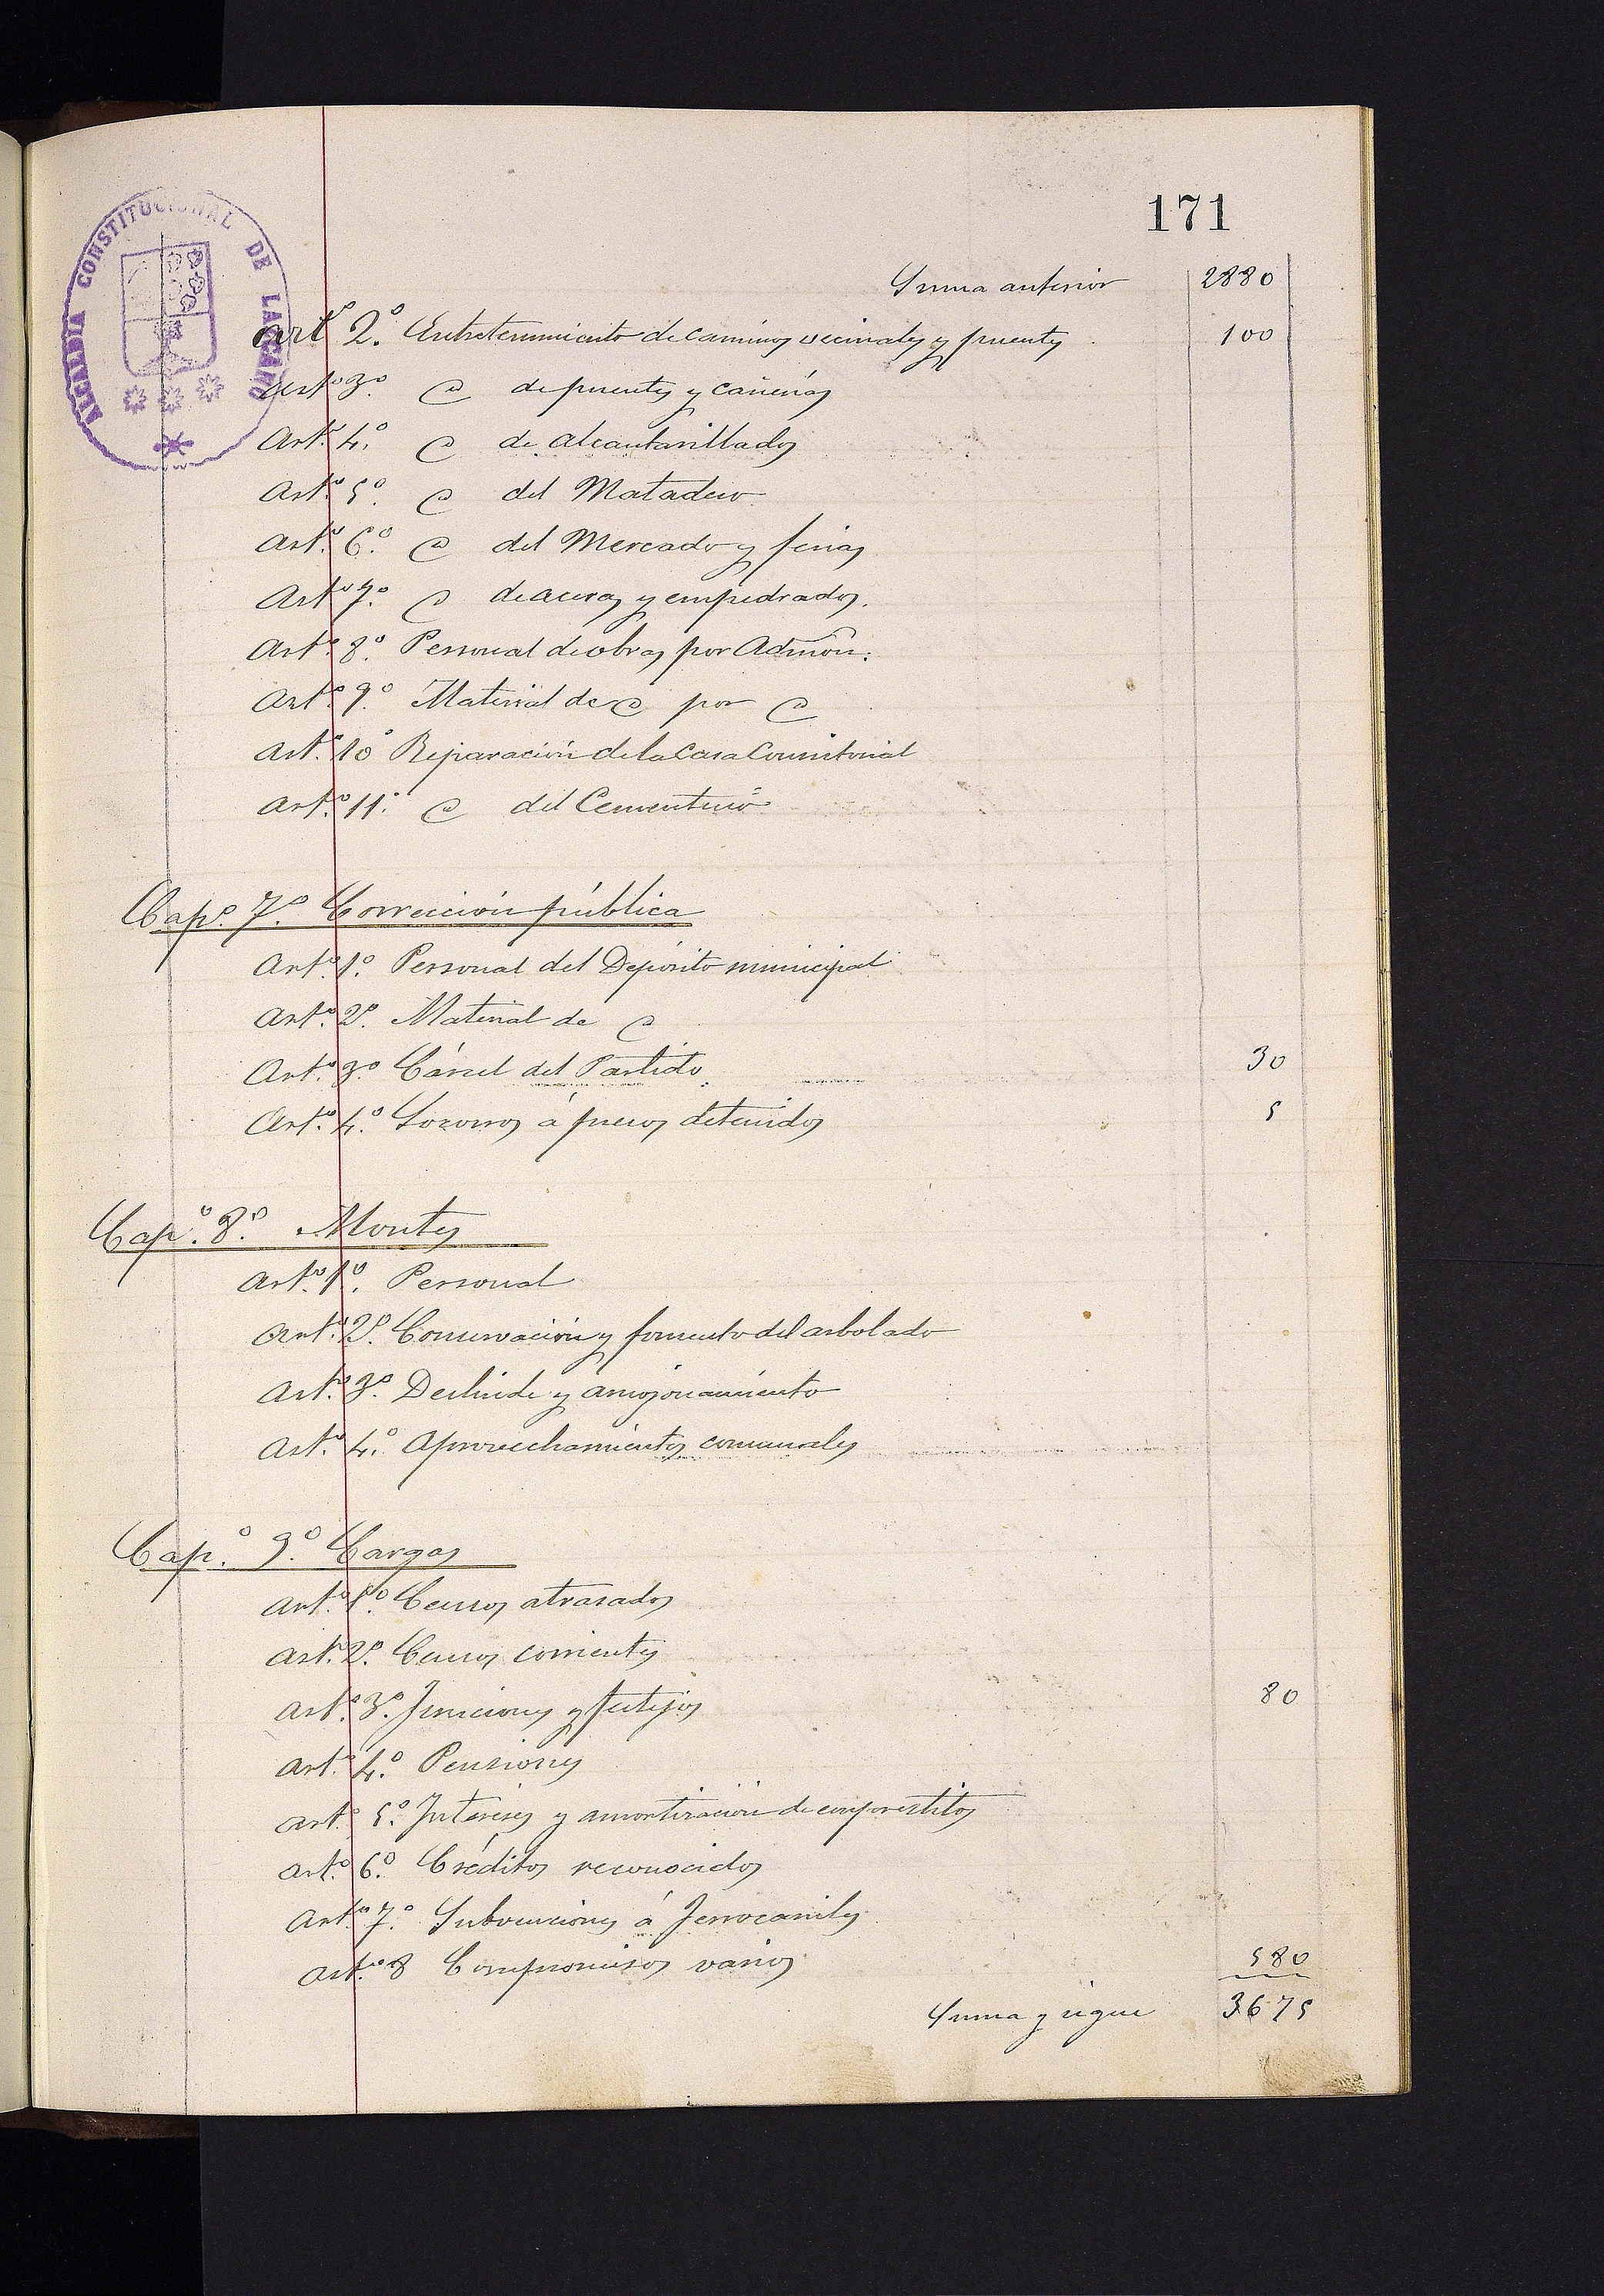 171
ALCALDIA CONSTITUCIONAL DE LAZCANO
Suma anterior 2880
Artº 2º. Entretenimiento de caminos vecinales y puentes 100
Artº. 3º. @ de fuentes y cañerías
Artº. 4º. @ de alcantarillados
Artº. 5º. @ del Matadero
Artº. 6º. @ del Mercado y ferias
Artº. 7º. @ de aceras y empedrados.
Artº. 8º. Personal de obras por Admón.
Artº. 9º. Material de @ por @
Artº. 10º Reparación de la Casa Consistorial
Artº. 11º. @ del Cementerio
Capº. 7º. Corrección pública
Artº. 1º. Personal del Depósito municipal
Artº. 2º. Material de @
Artº. 3º. Cárcel del Partido 30
Artº. 4º. Socorros á presos detenidos 5
Capº. 8º. Montes
Artº. 1º. Personal
Artº. 2º. Conservación y fomento del arbolado
Artº. 3º. Deslinde y amojonamiento
Artº. 4º. Aprovechamientos comunales
Capº. 9º. Cargas
Artº. 1º. Censos atrasados
Artº. 2º. Censos corrientes
Artº. 3º. Funciones y festejos 80
Artº. 4º. Pensiones
Artº. 5º. Intereses y amortización de empréstitos
Artº. 6º. Créditos reconocidos
Artº. 7º. Subvenciones á Ferrocarriles
Artº. 8 Compromisos varios 580
Suma y sigue 3675